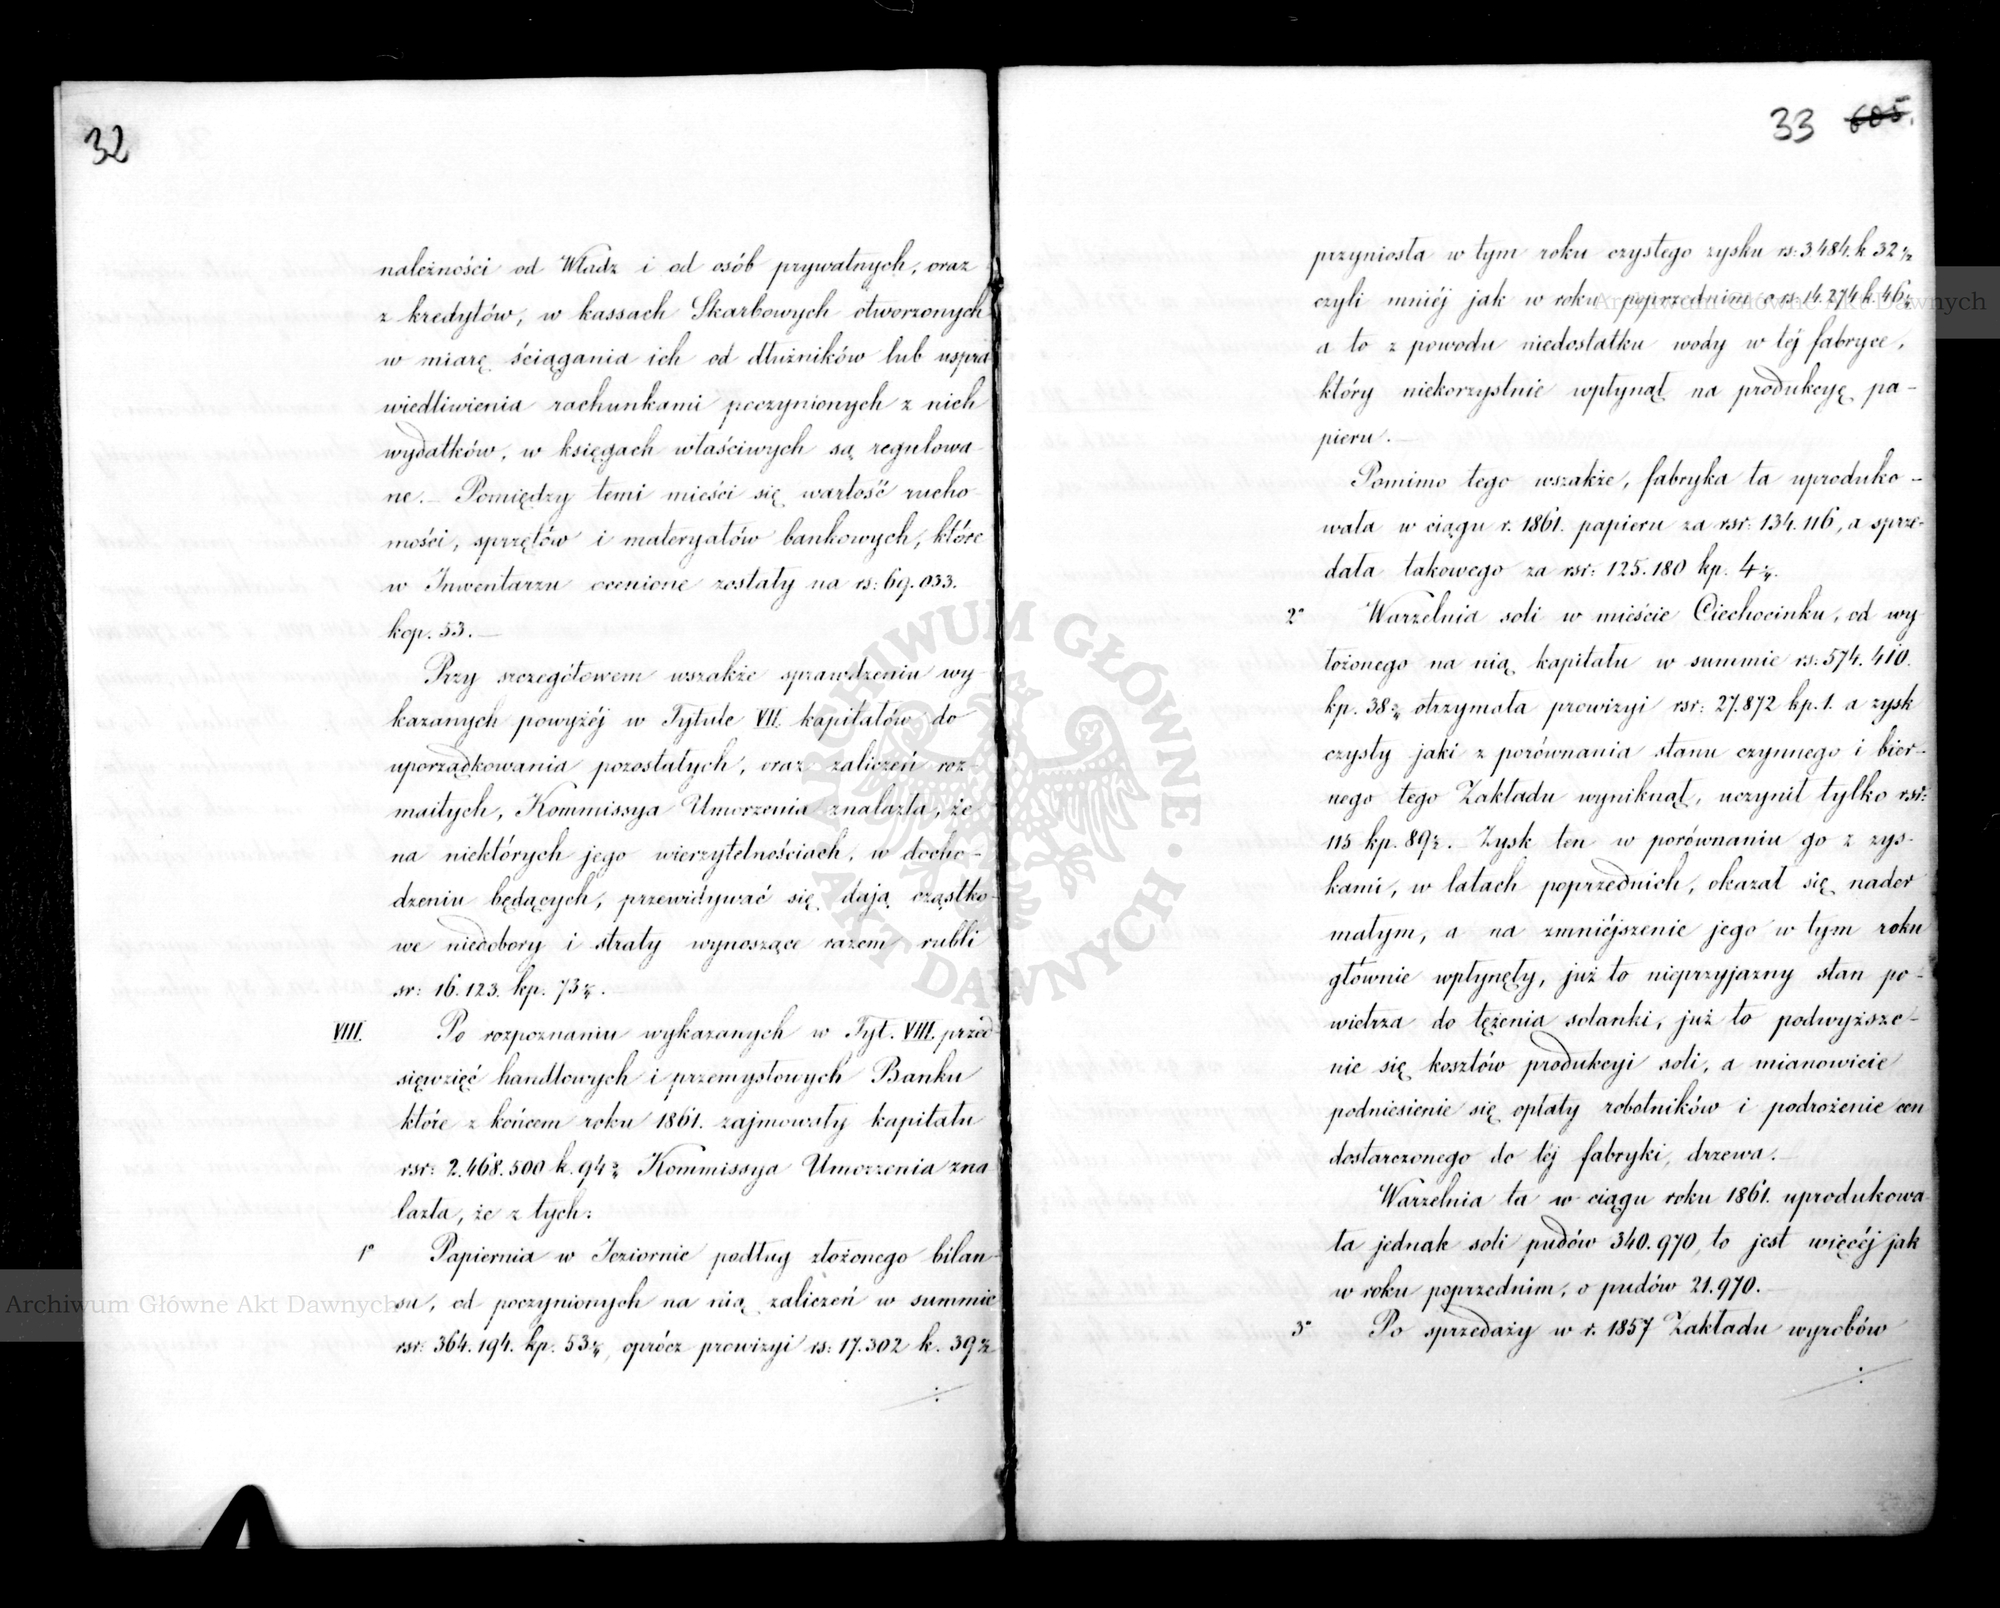 32
należności od Władz i od osób prywatnych, oraz
z kredytów, w kassach Skarbowych otworzonych
w miarę ściągania ich od dłużników lub uspra
wiedliwienia rachunkami poczynionych z nich
wydatków, w księgach właściwych są regulowa-
ne. — Pomiędzy temi mieści się wartość rucho-
mości, sprzętów i materyałów bankowych, które
w Inwentarzu ocenione zostały na rs: 69.033.
kop. 53. —
Przy szczegółowem wszakże sprawdzeniu wy-
kazanych powyżéj w Tytule VII. kapitałów do
uporządkowania pozostałych, oraz zaliczeń roz-
maitych, Kommissya Umorzenia znalazła, że
na niektórych jego wierzytelnościach, w docho-
dzeniu będących, przewidywać się dają cząstko-
we niedobory i straty wynoszące razem rubli
sr: 16.123. kp. 73
VIII. Po rozpoznaniu wykazanych w Tyt. VIII. przed
sięwzięć handlowych i przemysłowych Banku
które z końcem roku 1861. zajmowały kapitału
rsr: 2.468.500 k. 94 Kommissya Umorzenia zna
lazła, że z tych:
1° Papiernia w Jeziornie podług złożonego bilan-
su, od poczynionych na nią zaliczeń w summie
rsr: 364.194. kp. 53 oprócz prowizyi rs: 17.302 k. 39
33 605.
przyniosła w tym roku czystego zysku rs: 3.484. k 32
czyli mniéj jak w roku poprzednim o rs. 14.274 k. 46
a to z powodu niedostatku wody w téj fabryce,
który niekorzystnie wpłynął na produkcyę pa-
pieru. —
Pomimo tego wszakże, fabryka ta uproduko-
wała w ciągu r. 1861. papieru za rsr: 134.116, a sprze-
dała takowego za rsr: 125.180 kp. 4
2° Warzelnia soli w mieście Ciechocinku, od wy
łożonego na nią kapitału w summie rs: 574.410.
kp. 38 otrzymała prowizyi rsr: 27.872 kp. 1. a zysk
czysty jaki z porównania stanu czynnego i bier-
nego tego Zakładu wyniknął, uczynił tylko rsr:
115 kp. 89 Zysk ten w porównaniu go z zys-
kami, w latach poprzednich, okazał się nader
małym, a na zmniéjszenie jego w tym roku
głównie wpłynęły, już to nieprzyjazny stan po-
wietrza do tężenia solanki, już to podwyższe-
nie się kosztów produkcyi soli, a mianowicie
podniesienie się opłaty robotników i podrożenie cen
dostarczonego do téj fabryki, drzewa. —
Warzelnia ta w ciągu roku 1861. uprodukowa-
ła jednak soli pudów 340.970, to jest więcéj jak
w roku poprzednim, o pudów 21.970. —
3° Po sprzedaży w r. 1857 Zakładu wyrobów
Archiwum Główne Akt Dawnych
Archiwum Główne Akt Dawnych
ARCHIWUM GŁÓWNE AKT DAWNYCH